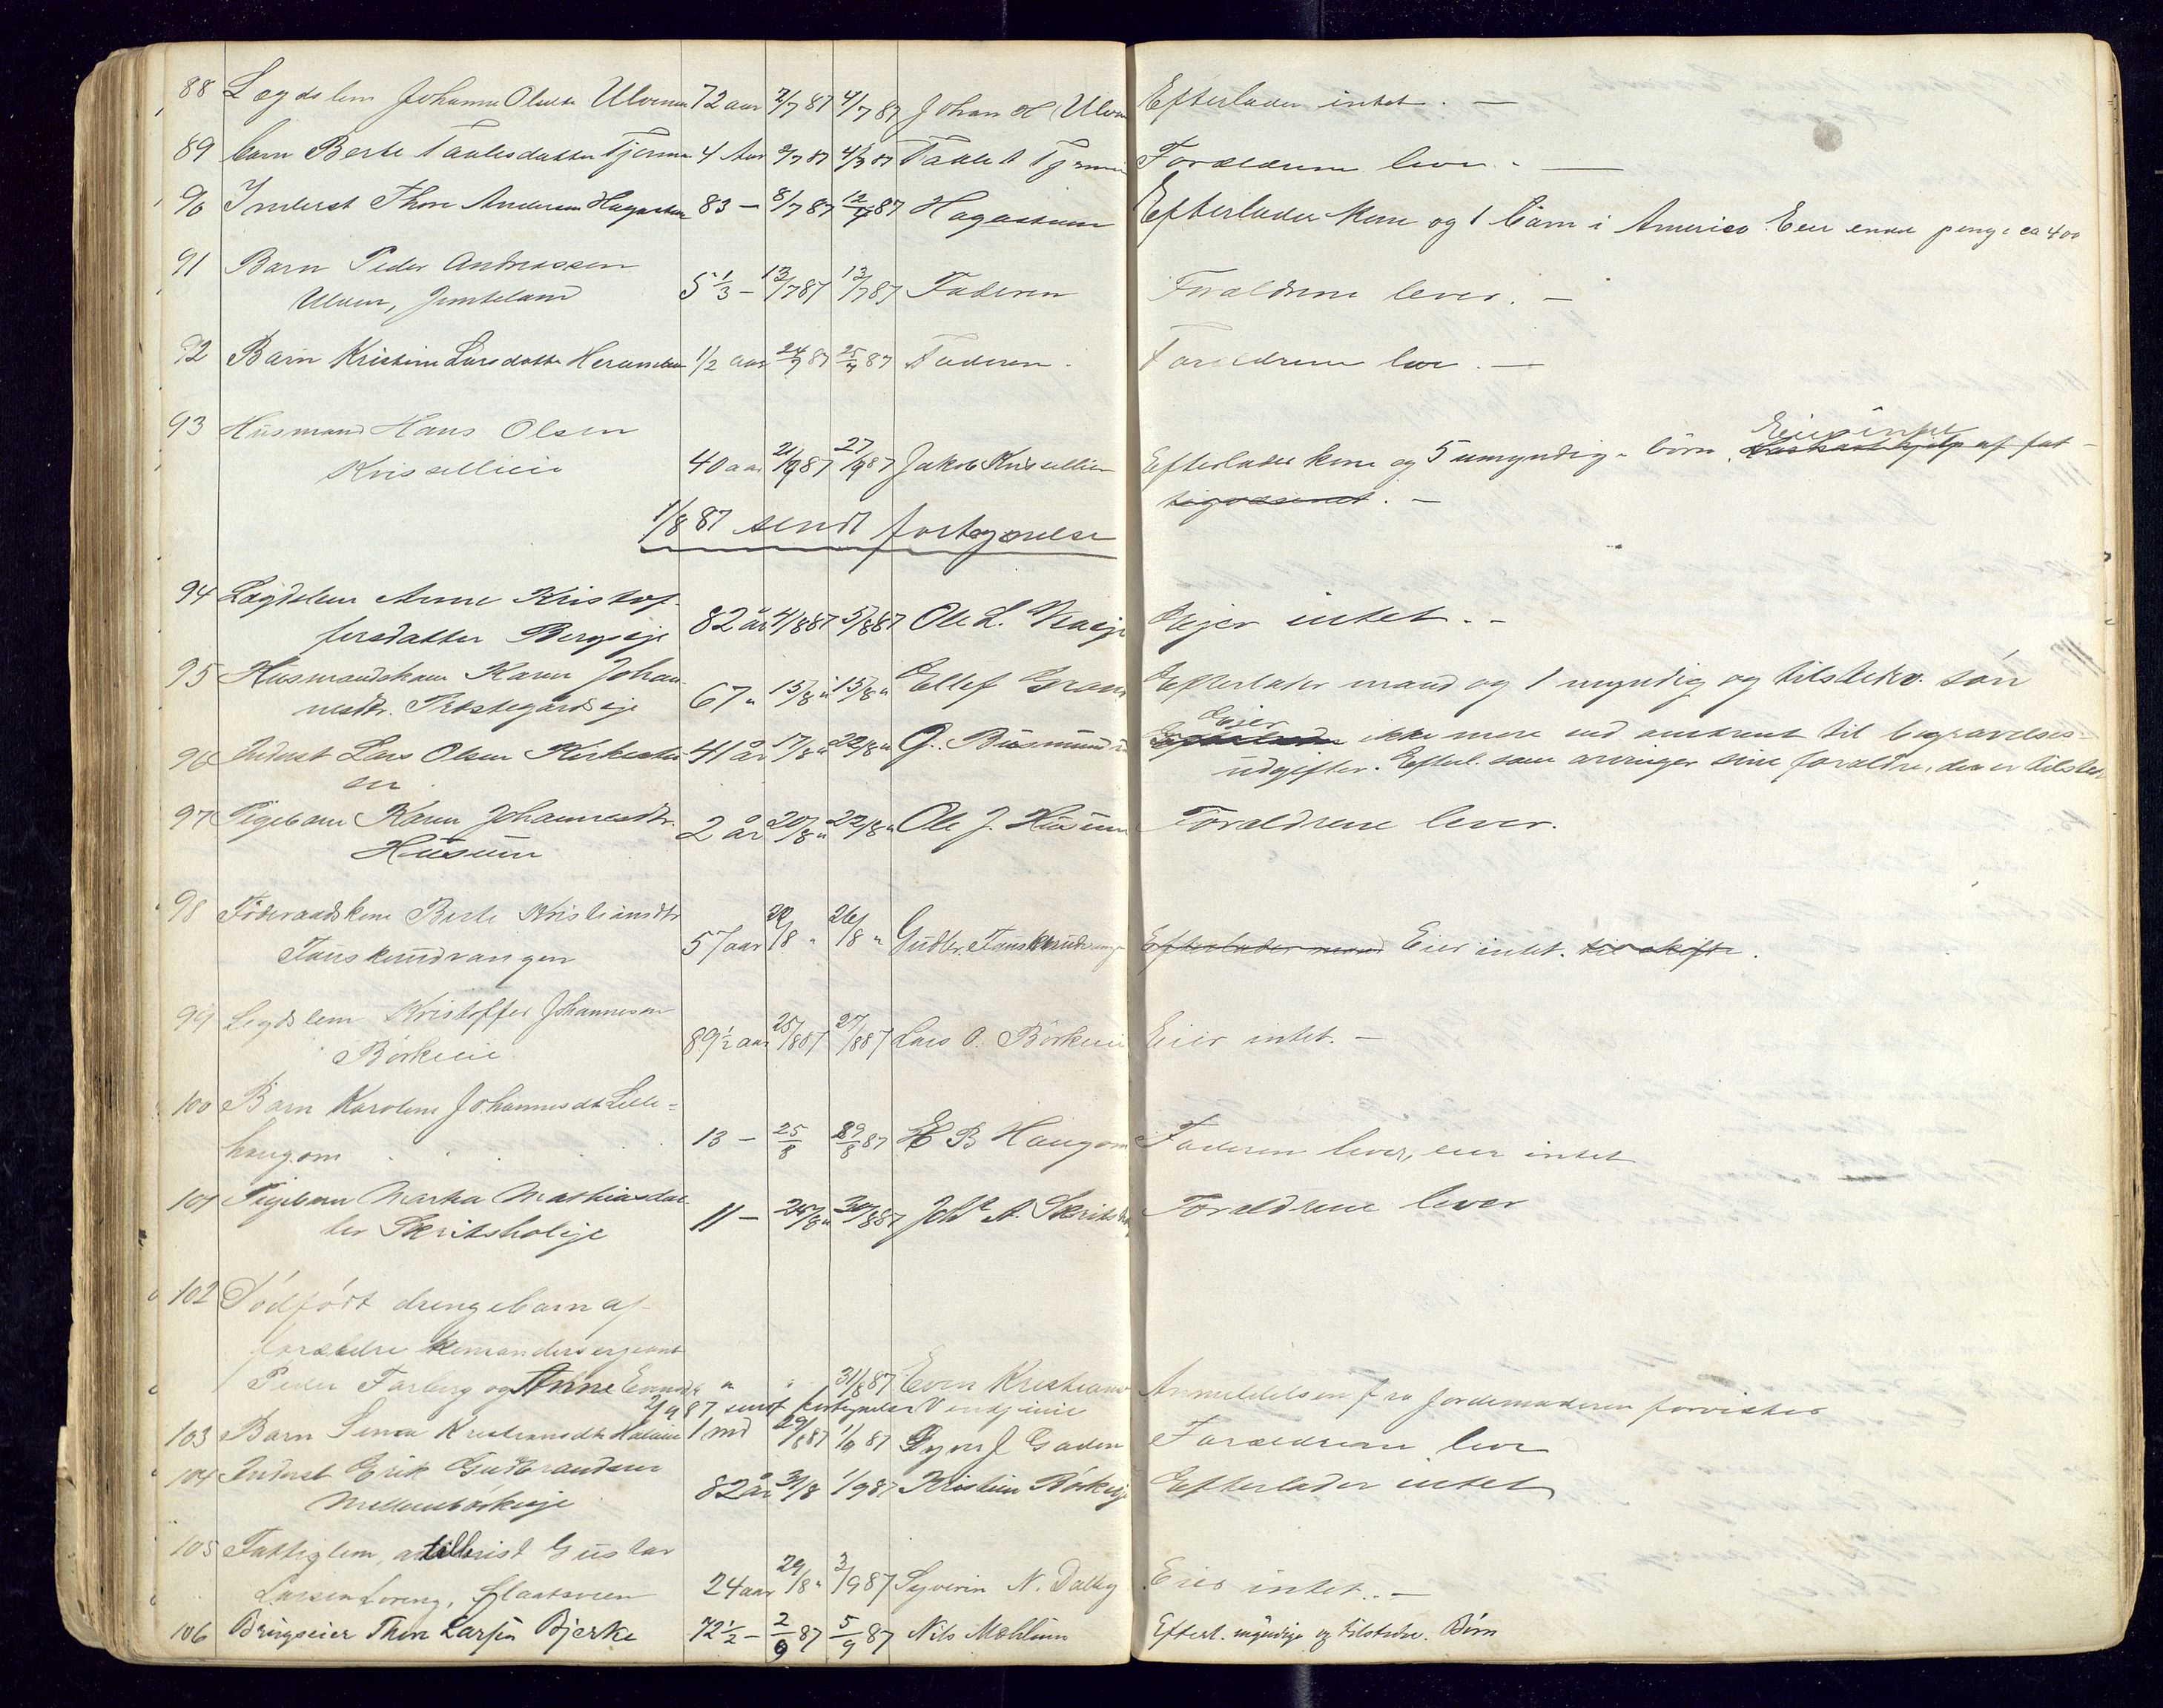 88 Lægdslem Johanne Olsdtr Ulvenm 72 aar 2/7 87 4/7 87 Johan H Ulven Efterlader intet. —
89 barn Berte Paulesdatter Tjernm 4 Aar 2/7 87 4/7 87 Forældrene lever. —
90 Inderst Thore Andersen Hagastuen 83 — 8/7 87 12/7 87 Hagastuen Efterlader Kone og 1 barn i America. Eier penge ca 400
91 Barn Peder Andreassen
Ulven, Jemteland 5 1/3 — 13/7 87 13/7 87 Faderen Forældrene lever. —
92 Barn Kristine Larsdatter 1/2 aar 24/7 87 25/7 87 Faderen. Forældrene leve. —
93 Husmand Hans Olsen
40 aar 87 87 Jakob Efterlader kone og 5 umyndige børn, Eier intet af fat-
tigvæsenet. —
1/8 87 sendt fortegnelse
94 Lægdslem Anne Kristof-
fersdatter Bergseje 82 år 4/8 87 5/8 87 Ole L. Ejer intet. -
95 Husmandskone Karen Johan-
nesdtr. Præstegårdseje 67 " 15/8 " 15/8 " Ellef Efterlader mand og 1 myndig og tilstedev. søn
96 Inderst Lars Olsen Kirkestu-
en 41 år 17/8 " 22/8 " G. Ejer ikke mere end omtrent til begravelses-
udgifter. Efterl. som arvinger sine forældre, der er tilsted
97 Pigebarn Karen Johannesdtr.
Husum 2 år 20/8 " 22/8 " Ole J. Husum Forældrene lever.
98 Føderaadskone Berte Kristiansdtr
Tauskerudvangen 57 aar 22/8 " 26/8 " Gudbr. Tauskerudvangen Efterlader mand Eier intet. til skifte.
99 Legdslem Kristoffer Johannesen
Børkeeie 89 1/2 aar 25/8 87 27/8 87 Lars O. Børkeeie Eier intet. —
100 Barn Karoline Johannesdtr Lille-
haugom 13 — 25/8 29/8 87 H B Haugom Faderen lever, eier intet
101 Pigebarn Marthea Mathiasdat-
ter Skritsholeje 11 — 25/8 " 30/8 87 A. Forældrene lever
102 Dødfødt drengebarn af
forældre Komandersergeant
Peder Farberg og Anne Evensdtr " " 31/8 87 Even Kristians Anmeldelsen fra Jordemoderen forvistes
2/9 87 sendt fortegnelse
103 Barn Lina Kristiansdtr 1 md 29/8 87 1/9 87 J Forældrene leve
104 Inderst Erik Gudbrandsen
Mellembørkeje 82 år 31/8 1/9 87 Kristian Børkeje Efterlader intet
105 Fattiglem, artillerist Gustav
Larsen Loreng, Flaatsveen 24 aar 29/8 " 3/9 87 Syverin N. Dalby Eier intet. —
106 Brugseier Thore Larsen Bjerke 72 1/2 — 2/9 87 5/9 87 Nils Mæhlum Efterl. myndige og tilstedev. Børn